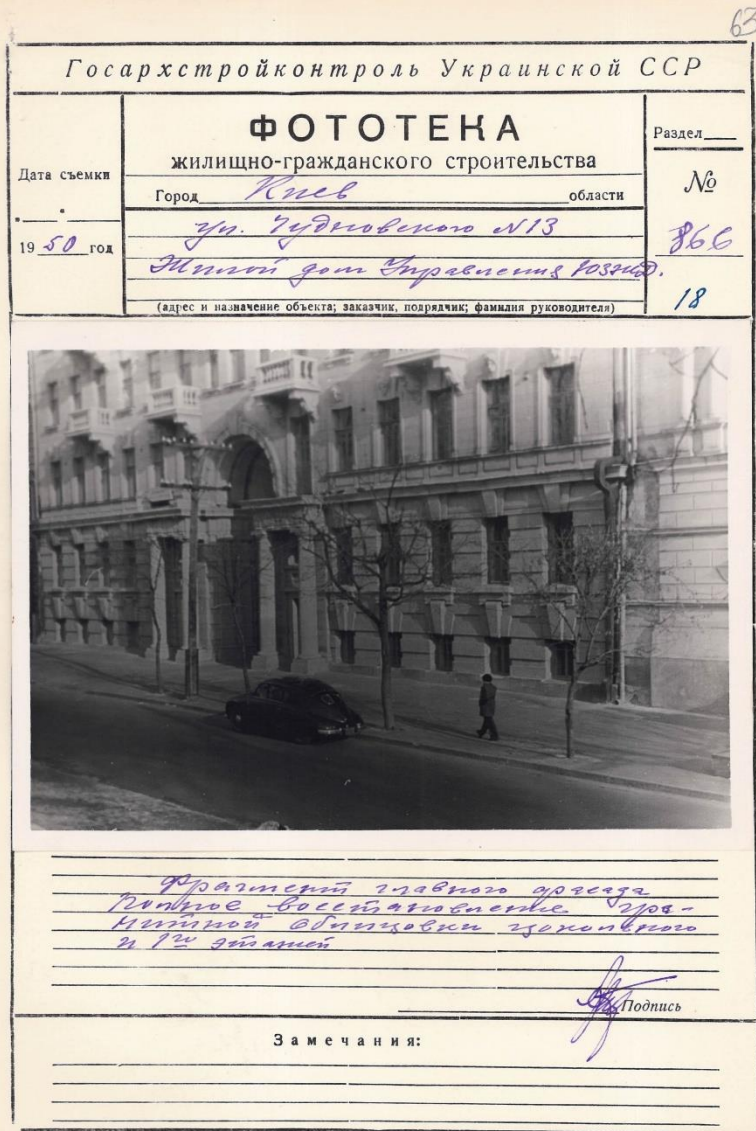 63
Госархстройконтроль Украинской ССР
ФОТОТЕКА
жилищно-гражданского строительства
Дата съемки
1950 год
Город Киев области
ул. Чудновского N13
Жилой дом Управления Юзжд.
(адрес и назначение объекта; заказчик, подрядчик; фамилия руководителя)
Раздел
№
866
18
Фрагмент главного фасада
Полное восстановление гра-
нитной облицовки цокольного
и 1го этажей
Подпись
Замечания: